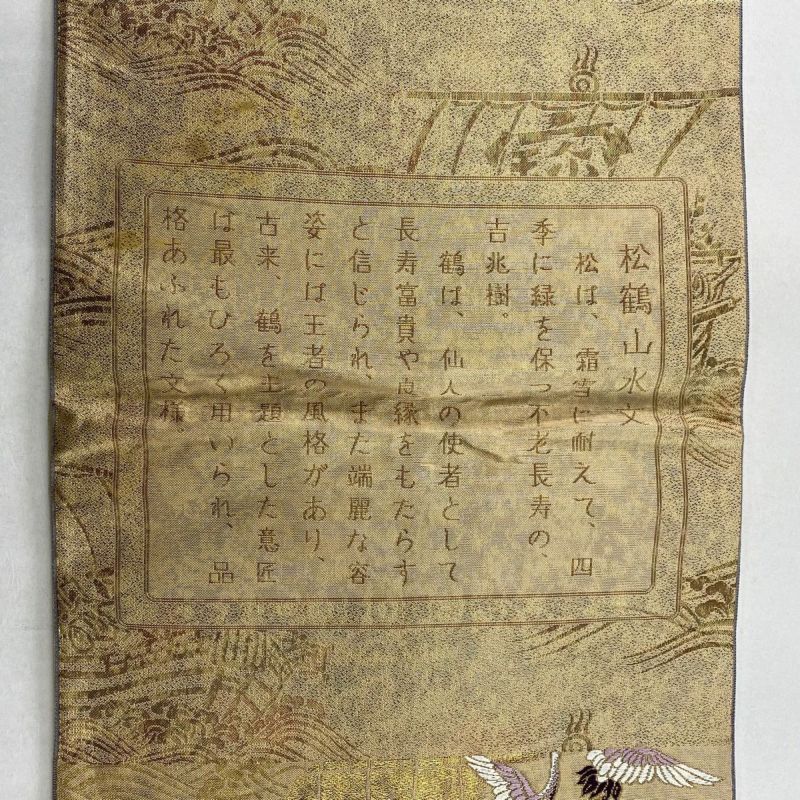 松鶴山水文
松は、霜雪に耐えて、四
季に緑を保つ不老長寿の、
吉兆樹。
鶴は、仙人の使者として
長寿富貴や良縁をもたらす
と信じられ、また端麗な容
姿には王者の風格があり、
古来、鶴を主題とした意匠
は最もひろく用いられ、品
格あふれた文様